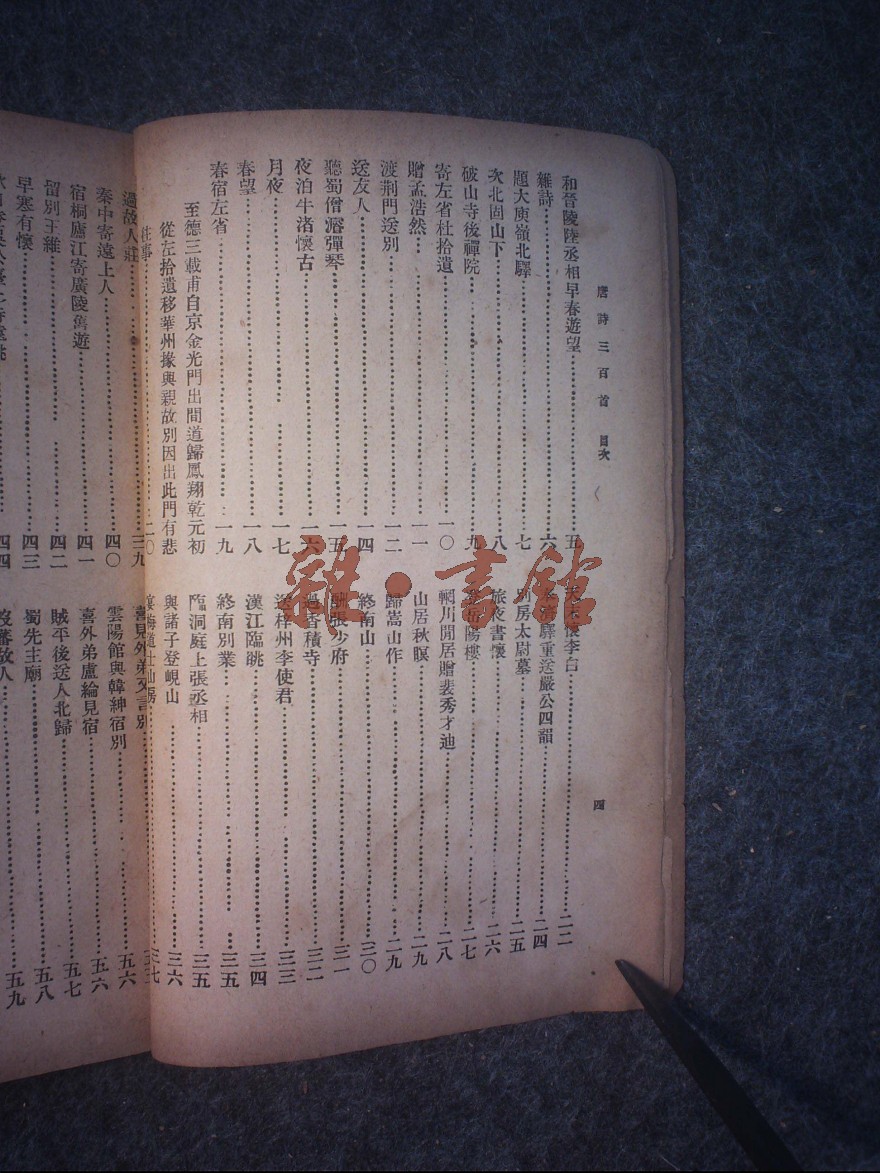 唐詩三百首 目次
四
和晉陵陸丞相早春遊望……五
雜詩……六
題大庾嶺北驛……七
次北固山下……八
破山寺後禪院……九
寄左省杜拾遺……一〇
贈孟浩然……一一
渡荊門送別……一二
送友人……一四
聽蜀僧濬彈琴……一五
夜泊牛渚懷古……一六
月夜……一七
春望……一八
春宿左省……一九
至德三載甫自京金光門出間道歸鳳翔乾元初
從左拾遺移華州掾與親故別因出此門有悲
往事……二〇
懷李白……二二
濟驛重送嚴公四韻……二四
別房太尉墓……二五
旅夜書懷……二六
岳陽樓……二七
輞川閒居贈裴秀才迪……二八
山居秋暝……二九
歸嵩山作……二九
終南山……三〇
酬張少府……三一
過香積寺……三二
送梓州李使君……三三
漢江臨眺……三四
終南別業……三五
臨洞庭上張丞相……三五
與諸子登峴山……三六
道士……三七
過故人莊……三九
秦中寄遠上人……四〇
宿桐廬江寄廣陵舊遊……四一
留別王維……四二
早寒有懷……四三
四四
喜見外弟又言別
雲陽館與韓紳宿別……五六
喜外弟盧綸見宿……五六
賊平後送人北歸……五七
蜀先主廟……五八
沒蕃故人……五九
雜·書館